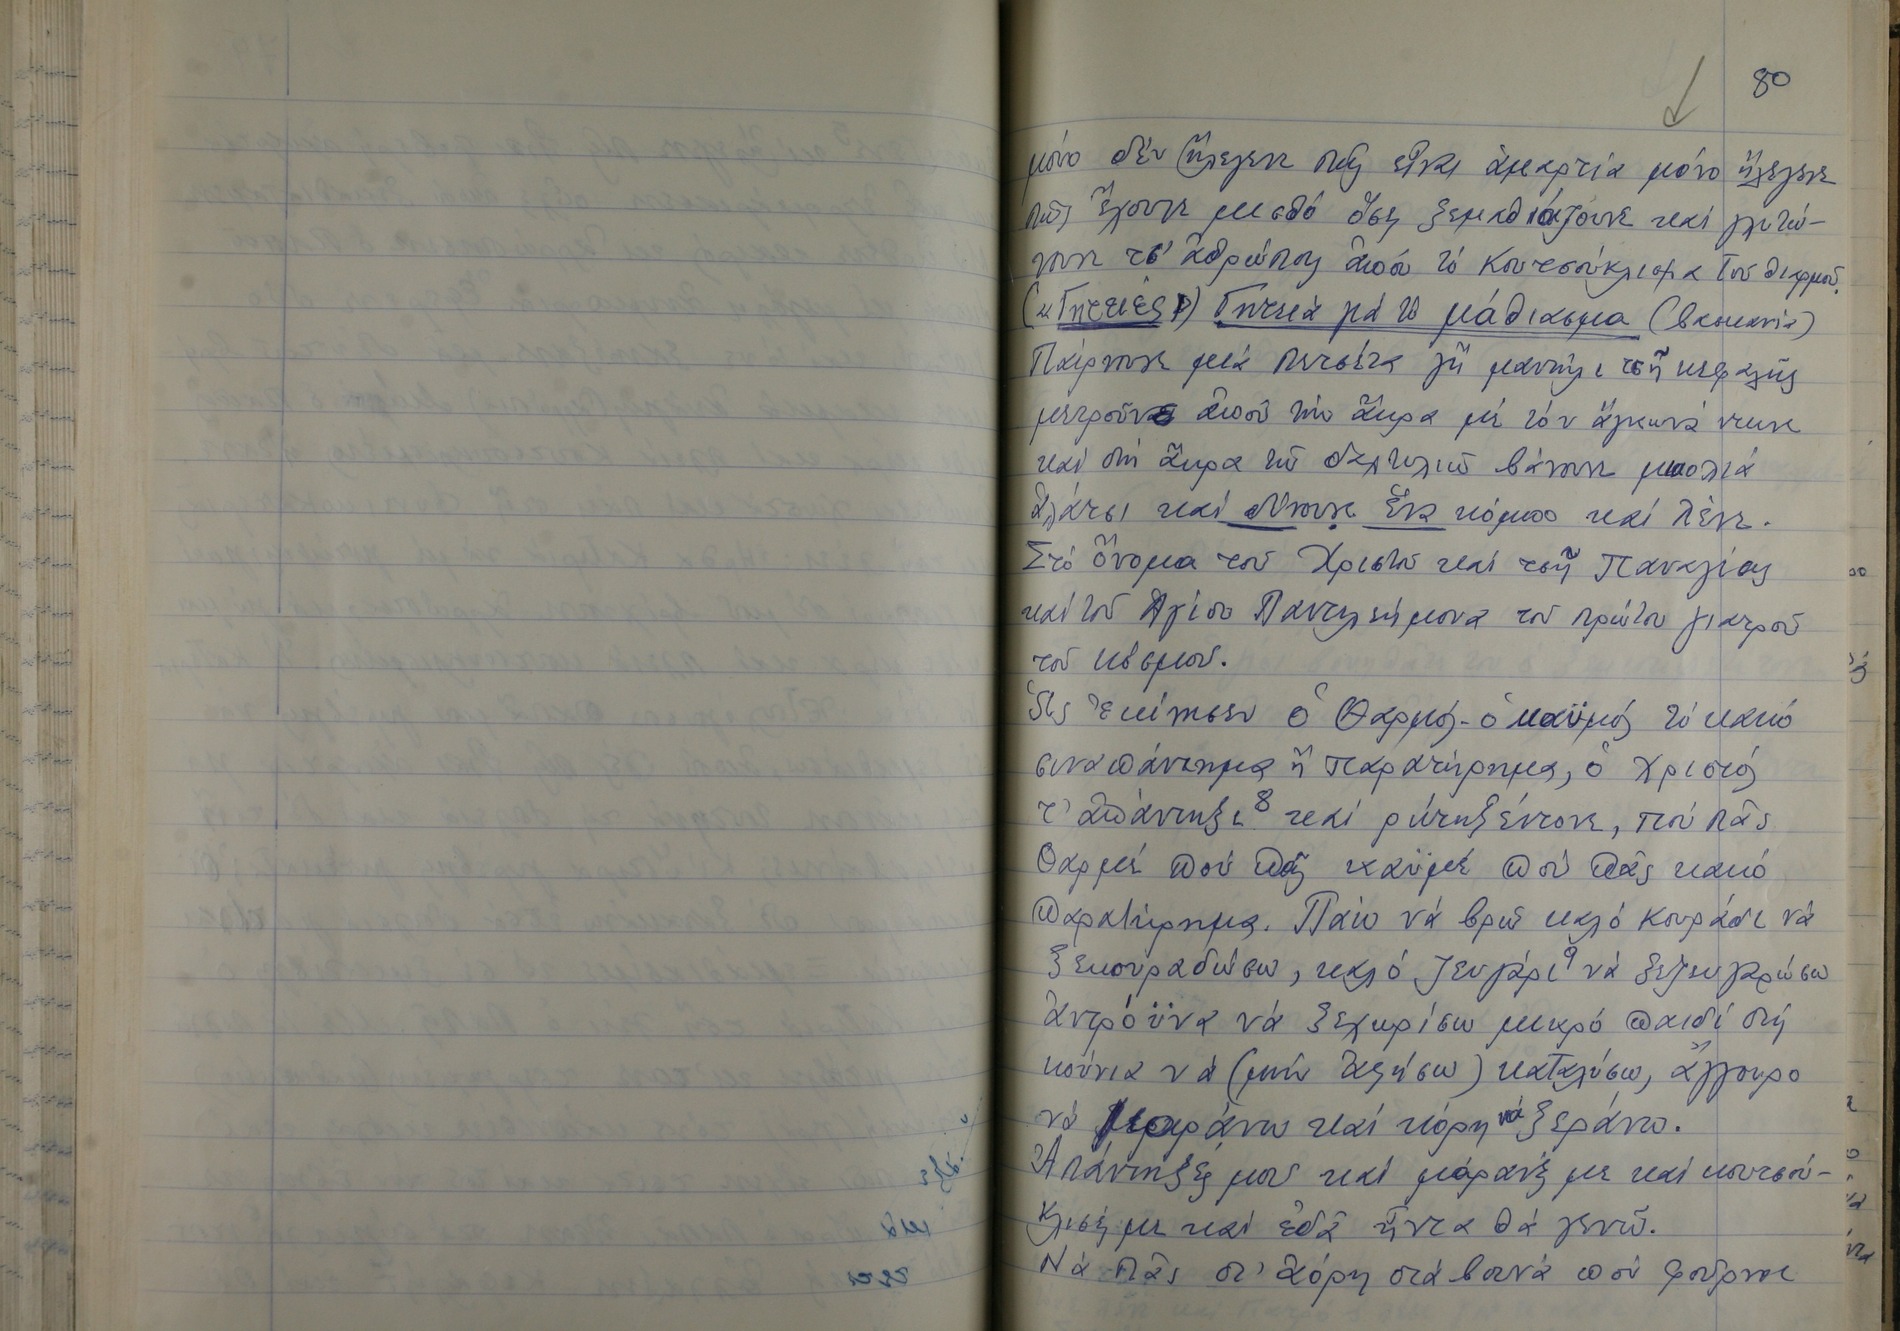 80
μόνο δέν ἤλεγενε πώς εἶναι ἁμαρτία μόνο ἤλεγενε
πώς ἔχουνε μιστό ὅσοι ξεμαθιάζουνε καί γλυτώ-
νουνε τσ' ἀθρώπους ἀπού τό κουτσούκλισμα τοῦ θιαρμοῦ.
(«Γητειές») Γητειά γιά τό μάθιασμα (βασκανία)
Παίρνουνε μιά πετσέτα γῆ μαντήλι τσῆ κεφαλῆς
μετροῦνε ἀπού τήν ἄκρα μέ τόν ἄγκωνά ντωνε
καί στή ἄκρα τοῦ δαχτυλιοῦ βάνουνε μπολιά
ἁλάτσι καί δένουνε ἕνα κόμπο καί λένε.
Στό ὄνομα τοῦ Χριστοῦ καί τσῆ Παναγίας
καί τοῦ Ἁγίου Παντελεήμονα τοῦ πρώτου γιατροῦ
τοῦ κόσμου.
Ὡς ἐκίνησεν ὁ Θαρμός - ὁ καϋμός τό κακό
συναπάντημα ἤ παρατήρημα, ὁ Χριστός
τ' ἀπάντηξε 8 καί ρώτηξέντονε, ποῦ πᾶς
Θαρμέ ποῦ πᾶς καϋμέ ποῦ πᾶς κακό
παρατήρημα. Πάω νά βρῶ καλό κουράδι νά
ξεκουραδώσω, καλό ζευγάρι 9 νά ξεζευγαρώσω
ἀντρόϋνα νά ξεχωρίσω μικρό παιδί στή
κούνια νά (μήν ἀφήσω) καταλύσω, ἄγγουρο
νά μαράνω καί κόρη νά ξεράνω.
Ἀπάντηξές μου καί μάρανές με καί κουτσού-
κλισές με καί ἐδᾶ ἤντα θά γενῶ.
Νά πᾶς στ' ἀόρη στά βουνά πού